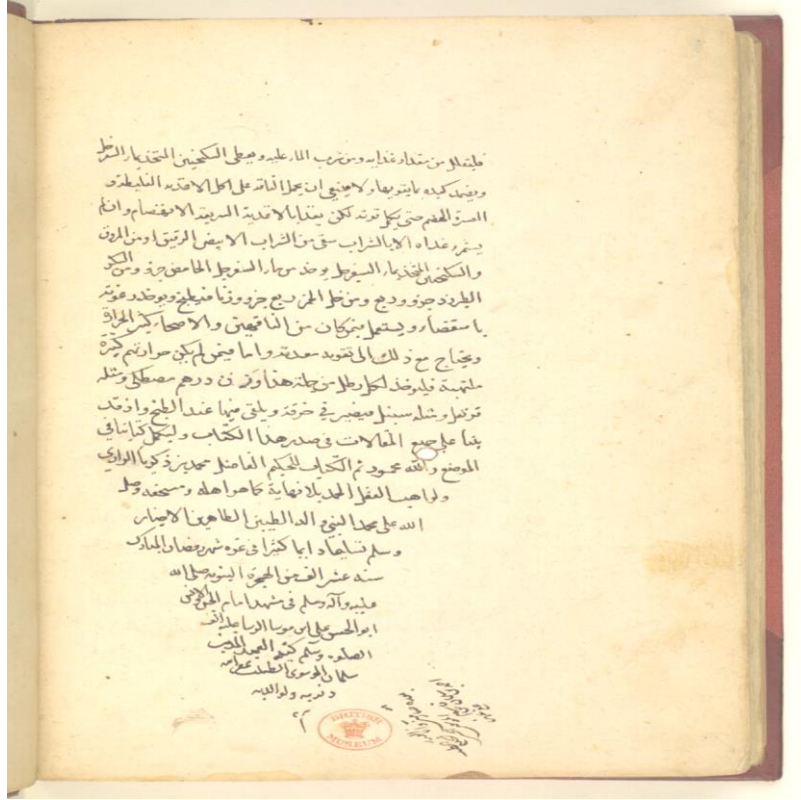 فليقلل من مقدار غذايه ومن شرب الماء عليه ويعطى السكنجبين المتخذ بماء السفرجل
ويضمد كبده بما يقويها ولا ينبغي ان يحمل الناقه على اكل الاغذية الغليظة و
العسرة الهضم حتى يكمل قوته لكن يغذا بالاغذية السريعة الانهضام وان لم
يستمر غذاه الا بالشراب سقي من الشراب الابيض الرقيق او من المروق
والسكنجبين المتخذ بماء السفرجل يوخذ من ماء السفرجل الحامض جزو ومن السكر
الطبرزد جزو وربع ومن خل الخمر ربع جزو وزنا فيطبخ ويوخذ رغوته
باستقصاء ويستعمل فيمن كان من الناقهين والاصحاء كثير الحرارة
ويحتاج مع ذلك الى تقوية معدته واما فيمن لم يكن حرارتهم كثيرة
ملتهبة فليوخذ لكل رطل من جملة هذا وزن درهم مصطكى ومثله
قرنفل ومثله سنبل فيصير في خرقة ويلقى فيها عند الطبخ واذ قد
اتينا على جميع المقالات في صدر هذا الكتاب وليكمل كتابنا في
الموضع والله محمود تم الكتاب للحكيم الفاضل محمد بن زكريا الرازي
ولواهب العقل الحمد بلا نهاية كما هو اهله ومستحقه وصلى
الله على محمد النبي واله الطيبين الطاهرين الاخيار
وسلم تسليما دايما كثيرا في غرة شهر رمضان المبارك
سنه عشر الف من الهجرة النبويه صلى الله
عليه وآله وسلم في مشهد امام
ابو الحسن علي ابن موسا الرضا عليه الف
الصلوة وسلم كتبه العبد المذنب
سلمان الموسوي غفر الله
ذنوبه ولوالديه
BRITISH
MUSEUM